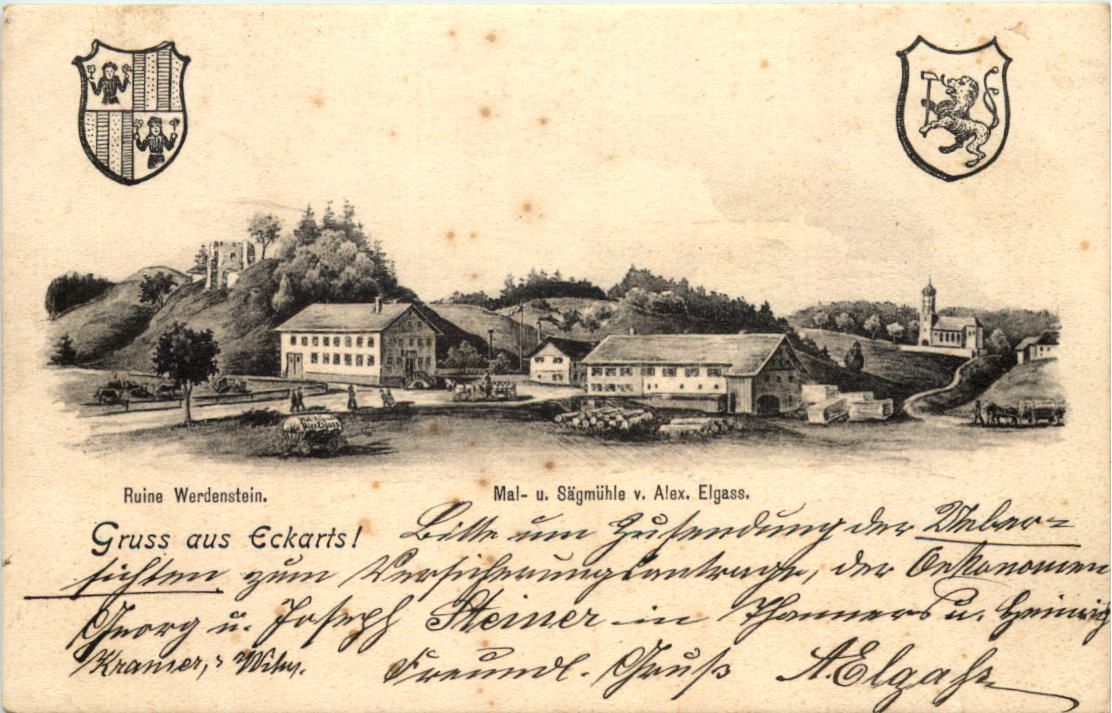 Ruine Werdenstein.
Mal- u. Sägmühle v. Alex. Elgass.
Gruss aus Eckarts!
Bitte um Zusendung der Ueber=
sichten zum Versicherungsantrage, der Oekonomen
Georg u. Joseph Steiner in Thanners u. Heinrig
Kramer,
Freundl. Gruß A. Elgaß